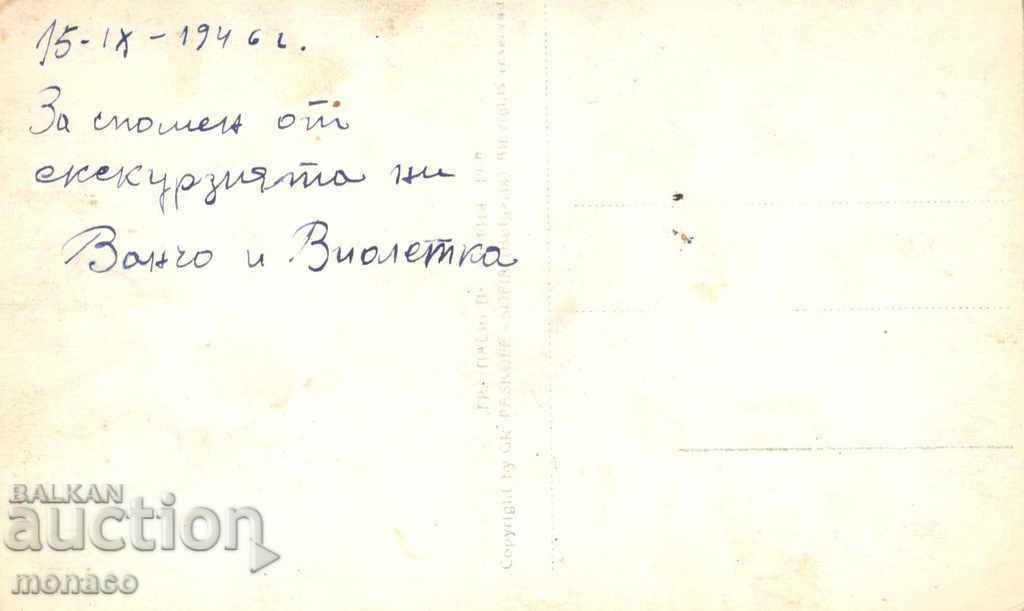 15-IX-1946 г.
За спомен от
екскурзията ни
Ванчо и Виолетка
Copyright by GR. PASKOFF - SOFIA
BALKAN
auction
monaco